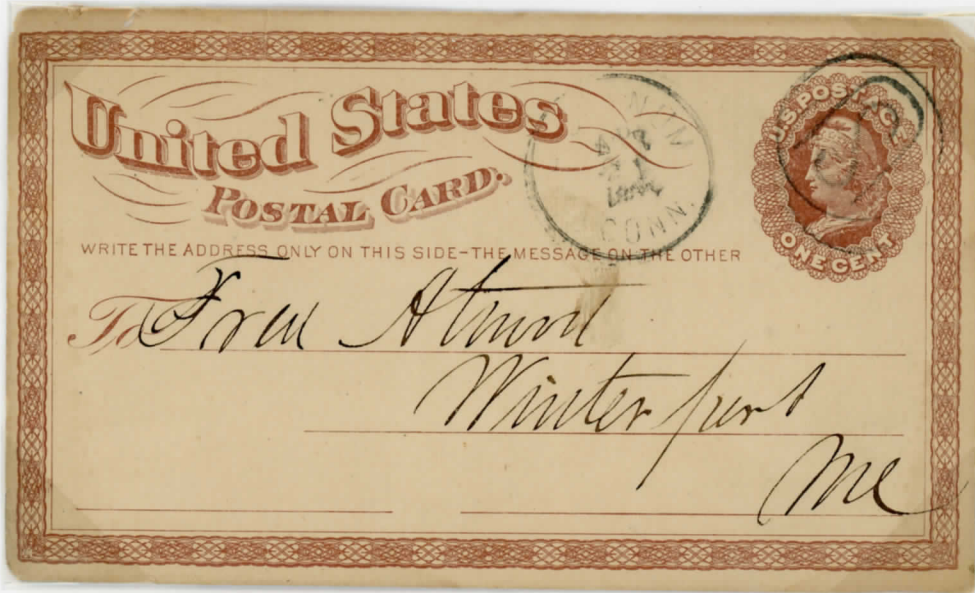 United States
POSTAL CARD.
U.S. POSTAGE
ONE CENT
APR
CONN.
WRITE THE ADDRESS ONLY ON THIS SIDE–THE MESSAGE ON THE OTHER
To Fred Atwood
Winterport
Me